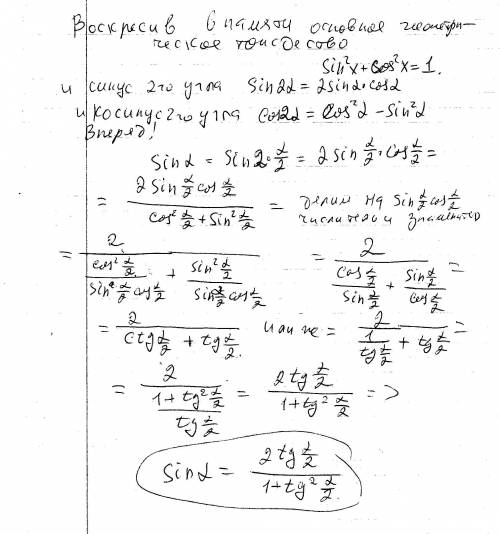 Воскресив в памяти основное геометри-
ческое тождество
sin²x + cos²x = 1.
и синус 2го угла sin2α = 2sinα·cosα
и косинус 2го угла cos2α = cos²α − sin²α
Вперед!
sinα = sin2·α/2 = 2sin α/2 · cos α/2 =
= (2 sin α/2 cos α/2)/(cos² α/2 + sin² α/2) = делим на sin α/2 cos α/2 числитель и знаменатель
= 2/((cos² α/2)/(sin α/2 cos α/2) + (sin² α/2)/(sin α/2 cos α/2)) = 2/((cos α/2)/(sin α/2) + (sin α/2)/(cos α/2)) =
= 2/(ctg α/2 + tg α/2) или же = 2/(1/(tg α/2) + tg α/2) =
= 2/((1 + tg² α/2)/(tg α/2)) = (2 tg α/2)/(1 + tg² α/2) =>
sinα = (2 tg α/2)/(1 + tg² α/2)